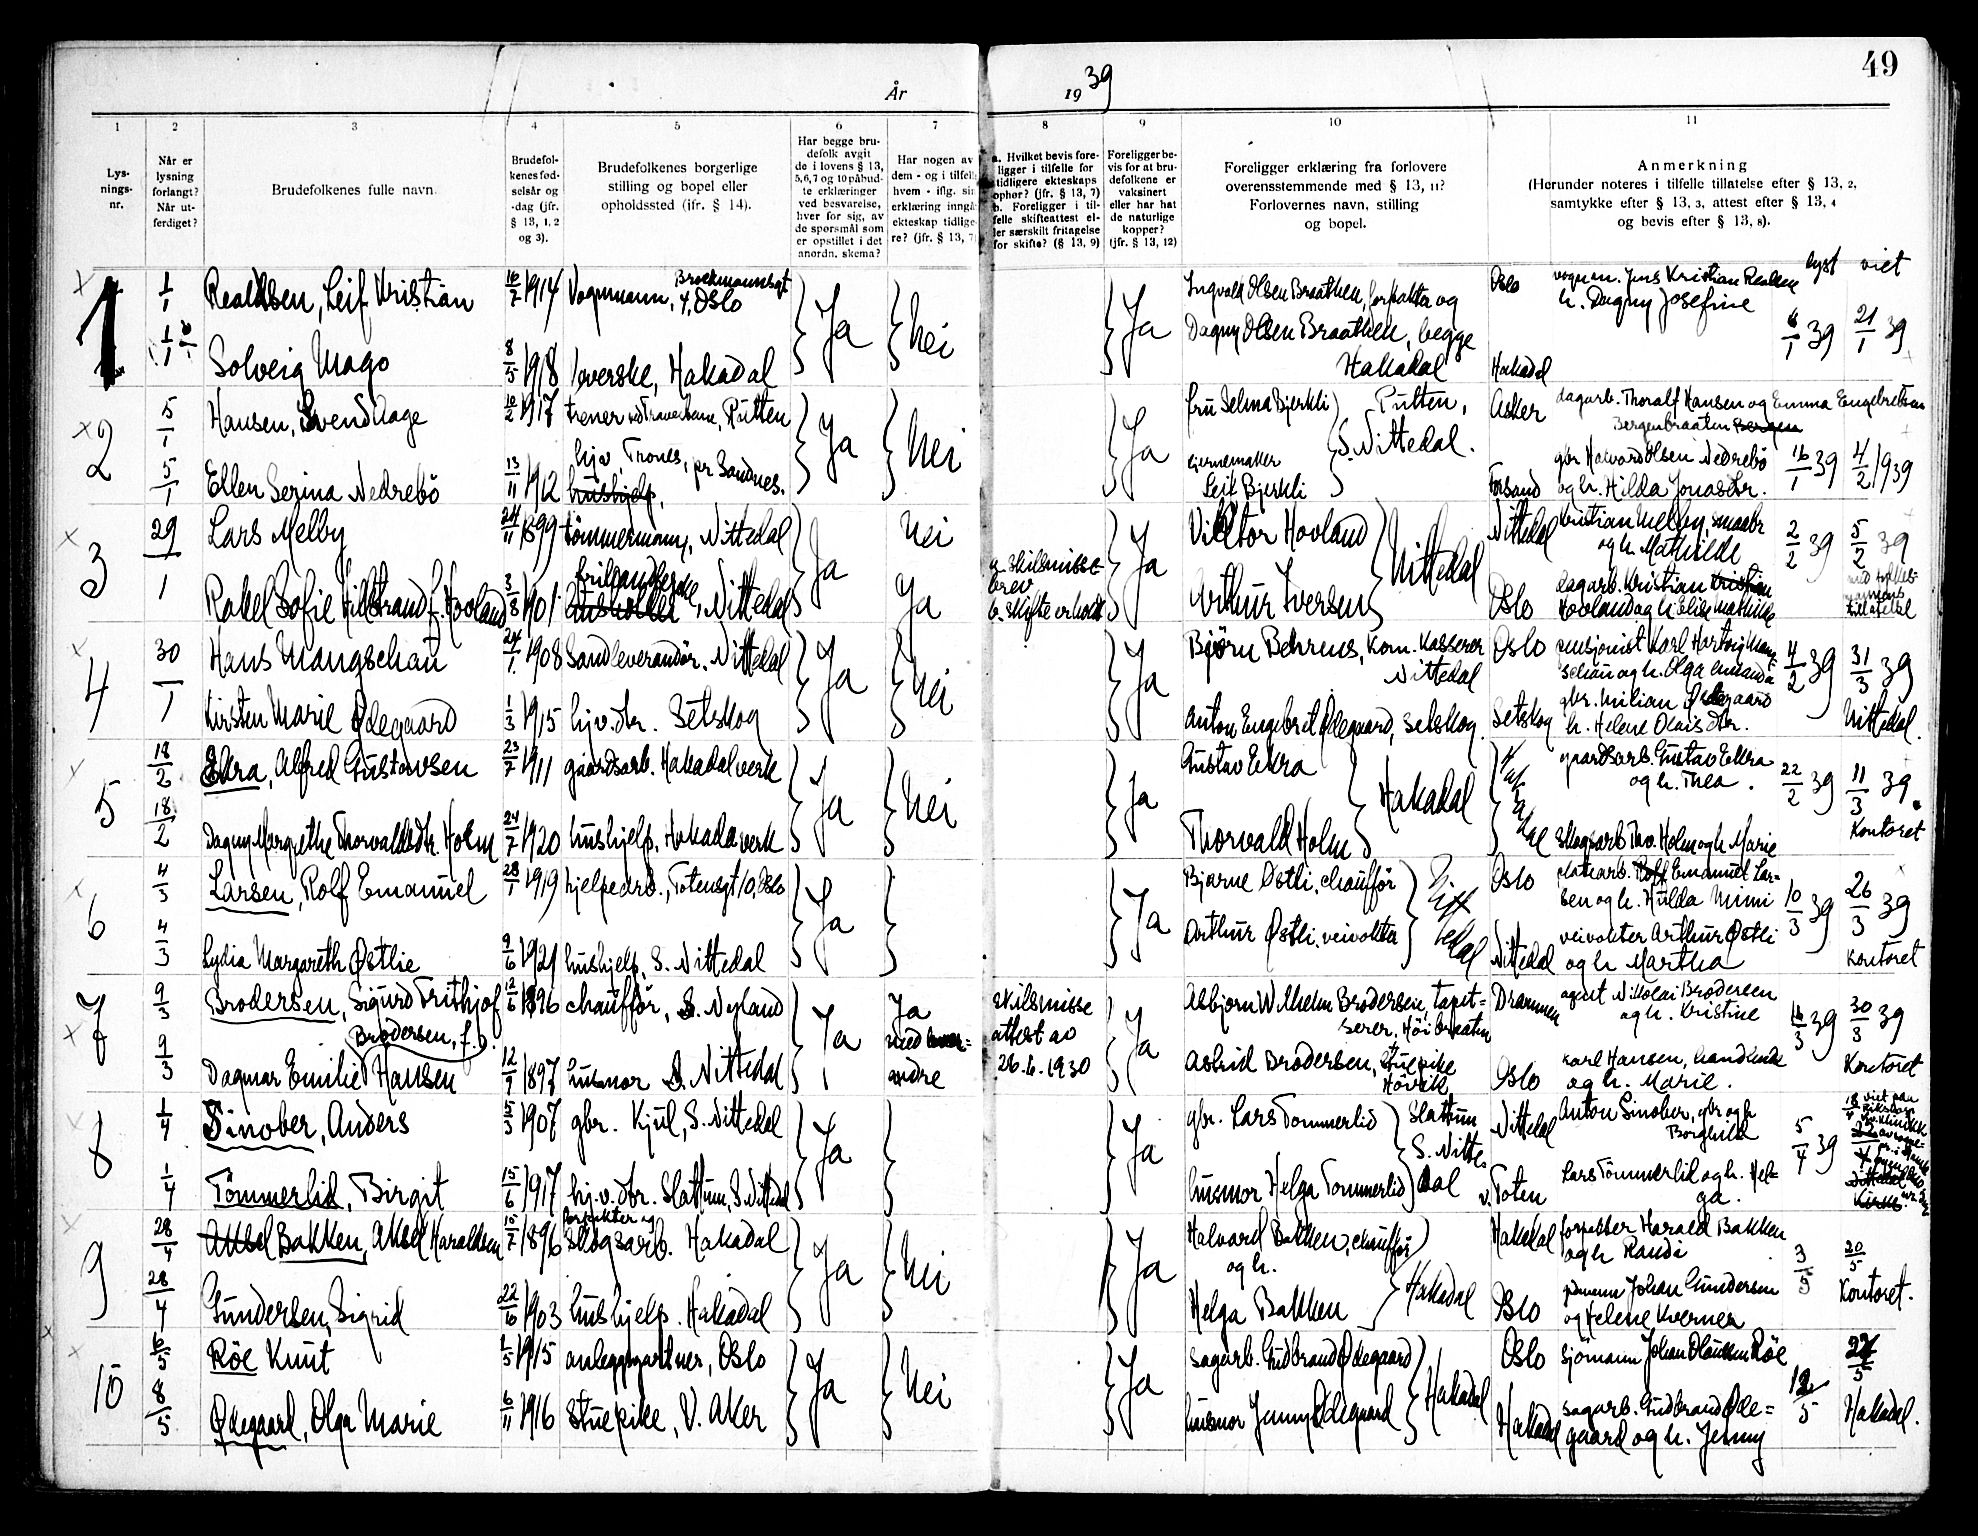 49
År 1939
1 2 3 4 5 6 7 8 9 10 11
Lys-
nings-
nr.
Når er
lysning
forlangt?
Når ut-
ferdiget?
Brudefolkenes fulle navn.
Brudefol-
kenes fød-
selsår og
-dag (jfr.
§ 13, 1, 2
og 3).
Brudefolkenes borgerlige
stilling og bopel eller
opholdssted (jfr. § 14).
Har begge bru-
defolk avgit
de i lovens § 13,
5, 6, 7 og 10 påbud-
te erklæringer
ved besvarelse,
hver for sig, av
de spørsmål som
er opstillet i det
anordn. skema?
Har nogen av
dem - og i tilfelle
hvem - iflg. sin
erklæring inngå
ekteskap tidlige-
re? (jfr. § 13, 7)
a. Hvilket bevis fore-
ligger i tilfelle for
tidligere ekteskaps
ophør? (jfr. § 13, 7)
b. Foreligger i til-
felle skifteattest el-
ler særskilt fritagelse
for skifte? (§ 13, 9)
Foreligger be-
vis for at bru-
defolkene er
vaksinert
eller har hat
de naturlige
kopper?
(jfr. § 13, 12)
Foreligger erklæring fra forlovere
overensstemmende med § 13, 11?
Forlovernes navn, stilling
og bopel.
Anmerkning
(Herunder noteres i tilfelle tillatelse efter § 13, 2,
samtykke efter § 13, 3, attest efter § 13, 4
og bevis efter § 13, 8).
lyst viet
1 1/1 Realdsen, Leif Kristian 16/7 1914 Vognmann, Brockmannsgt 4, Oslo Ja Nei Ja Ingvald Olsen Braathen, forpakter og Oslo vognm. Jens Kristian Realsen
h. Dagny Josefine 6/1 39 21/1 39
Solveig Mago 8/5 1918 Loverske, Hakadal Dagny Olsen Braathen, begge
Hakadal Hakadal
2 5/1 Hansen, Svend Aage 10/2 1917 trener ved Traverbane, Rutten Ja Nei Ja fru Selma Bjerkli Rutten, Asker dagarb. Thoralf Hansen og Emma Engebretsen
Bergenbraaten
5/1 Ellen Serina Nedrebö 13/11 1912 hjv, Trones, pr Sandnes. hushjelp, Leif Bjerkli S. Nittedal. Forsand gbr Halvard Olsen Nedrebö
og h. Hilda Jonasdtr. 16/1 39 4/2 1939
3 29/1 Lars Melby 24/11 1899 tømmermann, Nittedal Ja Nei Ja Viktor Hovland Nittedal Nittedal Kristian Melby, smaabr
og h. Mathilde 2/2 39 5/2 39
Rakel Sofie Hillstrand f. Hovland 3/8 1901 Nittedal Ja a. skilsmisse-
brev
b. skifte erholdt Arthur Iversen Oslo dagarb. Kristian
Hovland og h. Elise Mathilde tillatelse
4 30/1 Hans Mangschau 24/1 1908 Sandleverandør. Nittedal Ja Nei Ja Bjørn Behrens, Kom. Kasserer
Nittedal Oslo pensjonist Karl Hartvig Mang-
schau og h. Olga Amanda 4/2 39 31/3 39
Kirsten Marie Ødegaard 1/3 1915 hjv. dtr. Setskog Anton Engebret Ødegaard, Setskog Setskog gbr. Milian Ødegaard
h. Helene Olaisdtr. Nittedal.
5 18/2 Ekra, Alfred Gustavsen 23/7 1911 gaardsarb. Hakadalverk Ja Nei Ja Gustav Ekra Hakadal Hakadal gaardsarb. Gustav Ekra
og h. Thea. 22/2 39 11/3 39.
18/2 Dagny Margrethe Thorvaldsdtr. Holm 24/7 1920 hushjelp, Hakadaverk Thorvald Holm skogsarb Thv. Holm og h. Marie Kontoret
6 4/3 Larsen, Rolf Emanuel 28/1 1919 hjelpearb., Totensgt 10, Oslo Ja Ja Bjarne Østli, chauffør Nittedal Oslo Rolf Emanuel Lar-
sen og h. Hulda Mimi 10/3 39 26/3 39
4/3 Lydia Margareth Østlie 9/6 1921 hushjelp, S. Nittedal Arthur Østli. veivokta Nittedal veivokter Arthur Østli
og h Martha Kontoret
7 9/3 Brodersen, Sigurd Frithjof 12/6 1896 chauffør, S. Nyland Ja Ja
med hver-
andre skilsmisse
attest av
26.6.1930 Ja Asbjørn Wilhelm Brodersen, tapet-
serer, Høibraaten Drammen agent Nikolai Brodersen
og h. Kristine 16/3 39 30/3 39
9/3 Brodersen, f.
Dagmar Emilie Hansen 12/9 1897 husmor S. Nittedal Astrid Brodersen, stuepike
Høvik Oslo Karl Hansen, handlende
og h. Marie. Kontoret
8 1/4 Sinober, Anders 5/3 1907 gbr. Kjul, S. Nittedal Ja Ja gbr. Lars Tømmerlid Slattum
S. Nitte-
dal Nittedal Anton Sinober, gbr og h
Borghild 5/4 39 18/4 viet paa
1/4 Tömmerlid, Birgit 15/6 1917 hj.v. dtr. Slattum, S. Nittedal husmor Helga Tommerlid v. Toten Lars Tömmerlid og h. Hel-
ga. Kirke
9 28/4 Aksel Bakken, Aksel Haraldsen 15/7 1896 forpakter og
skogsarb. Hakadal Ja Nei Ja Halvard Bakken, chauffør
og h. Hakadal Hakadal forpakter Harald Bakken
og h Randi 3/5 20/5
28/4 Gundersen, Sigrid 22/6 1903 hushjelp. Hakadal Helga Bakken Oslo Johan Gundersen
og Helene Kverner Kontoret.
10 6/5 Röe Knut 1/5 1915 anleggsgartner, Oslo Ja Nei Ja sagarb. Gudbrand Ødegaard Hakadal Oslo sjömann Johan Olausen Röe 12/5
8/5 Ødegaard, Olga Marie 6/11 1916 stuepike, V. Aker husmor Jenny Ødegaard Hakadal sagarb. Gudbrand Øde=
gaard og h. Jenny Hakadal.